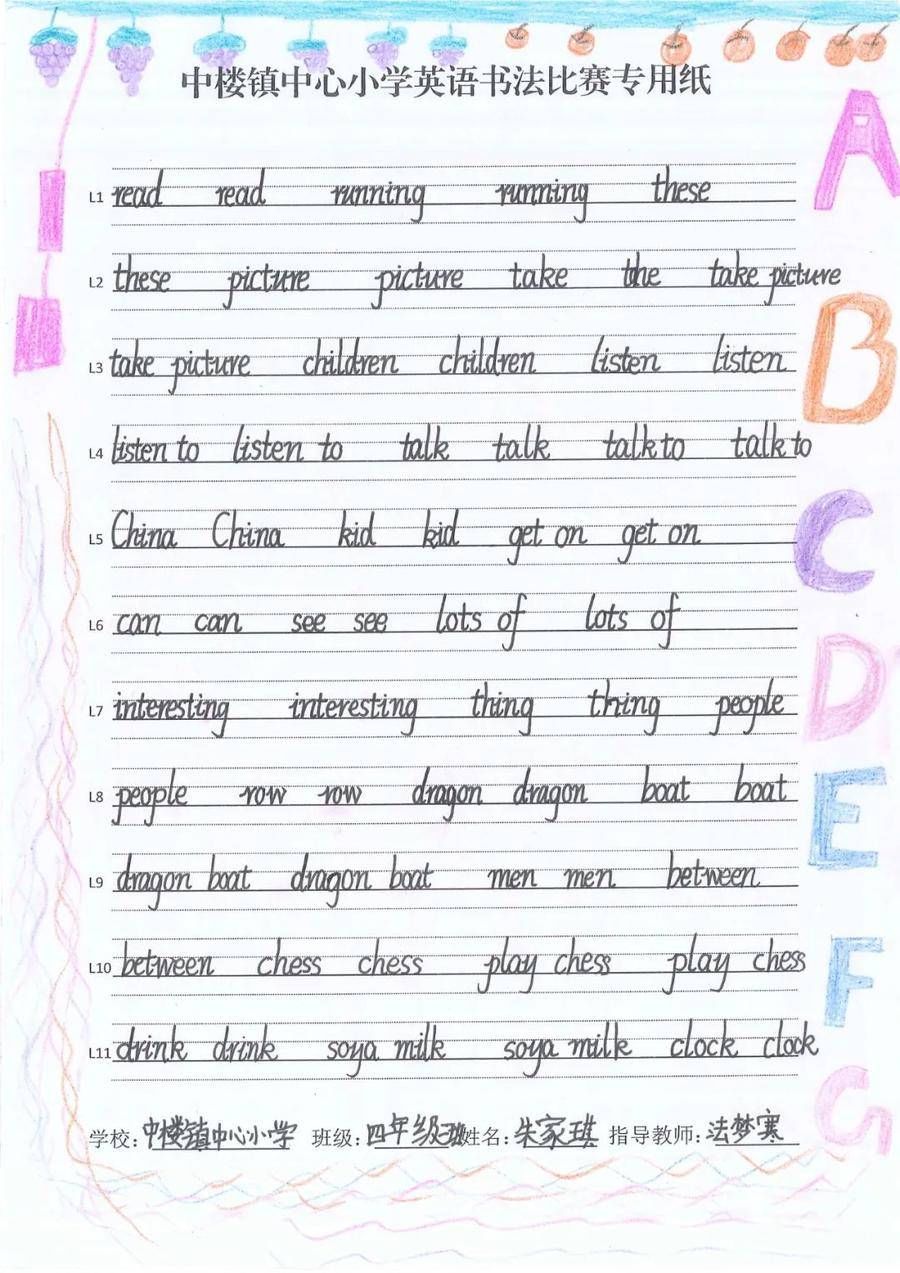 中楼镇中心小学英语书法比赛专用纸
L1 read read running running these
L2 these picture picture take the take picture
L3 take picture children children listen listen
L4 listen to listen to talk talk talk to talk to
L5 China China kid kid get on get on
L6 can can see see lots of lots of
L7 interesting interesting thing thing people
L8 people row row dragon dragon boat boat
L9 dragon boat dragon boat men men between
L10 between chess chess play chess play chess
L11 drink drink soya milk soya milk clock clock
学校:中楼镇中心小学 班级:四年级班 姓名:朱家琪 指导教师:法梦寒
A
B
C
D
E
F
G